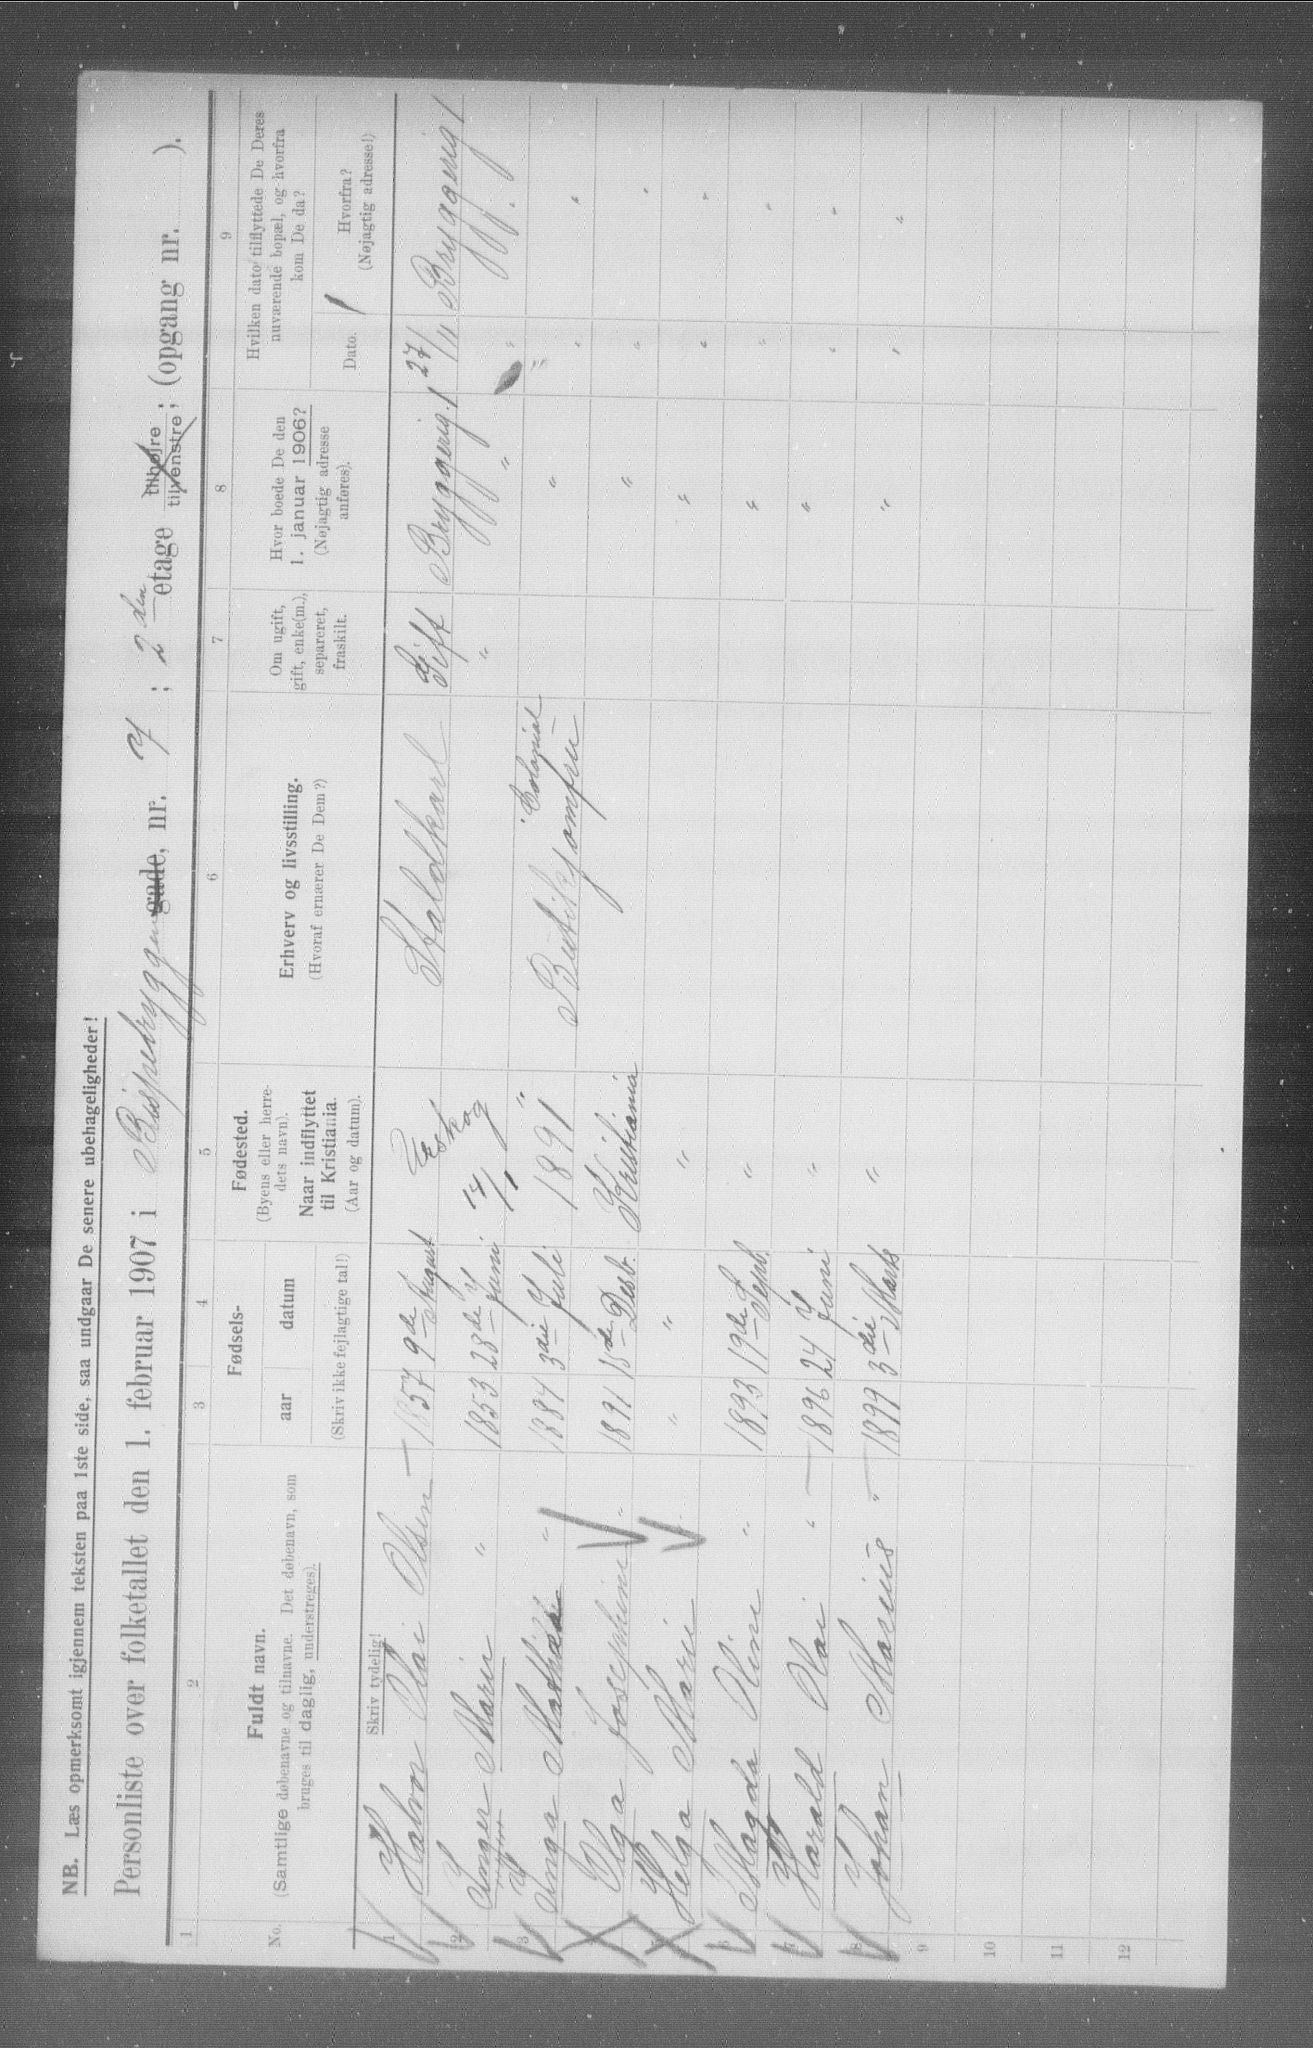 NB. Læs opmerksomt igjennem teksten paa 1ste side, saa undgaar De senere ubehageligheder!
Personliste over folketallet den 1. februar 1907 i Bispebryggen gade, nr. 7; 2 den etage tilhøjre tilvenstre; (opgang nr. ).
1 2 3 4 5 6 7 8 9
No.
Fuldt navn.
(Samtlige døbenavne og tilnavne. Det døbenavn, som
bruges til daglig, understreges).
Fødsels-
aar datum
(Skriv ikke fejlagtige tal!)
Fødested.
(Byens eller herre-
dets navn).
Naar indflyttet
til Kristiania.
(Aar og datum).
Erhverv og livsstilling.
(Hvoraf ernærer De Dem?)
Om ugift,
gift, enke(m.),
separeret,
fraskilt.
Hvor boede De den
1. januar 1906?
(Nøjagtig adresse
anføres).
Hvilken dato tilflyttede De Deres
nuværende bopæl, og hvorfra
kom De da?
Dato.
Hvorfra?
(Nøjagtig adresse!)
Skriv tydelig!
1 Halvor Olai Olsen 1857 9 de August Gift Bryggerig. 1 27/11 Bryggerig 1
2 Inger Marie " 1853 23 de Juni 14/1 " " " "
Staldkarl
3 Inga " 1884 3 die Juli 1891 " " " "
Colonial
Butikjomfru
4 Olga Josephine " 1891 18 de Desb. Kristiania " " "
5 Helga Marie " " " " " " "
6 Magda Oline " 1893 19 de Sepb. " " " "
7 Harald Olai " 1896 24 Juni " " " "
8 Johan Marius " 1899 3 die Marts " " " "
9
10
11
12